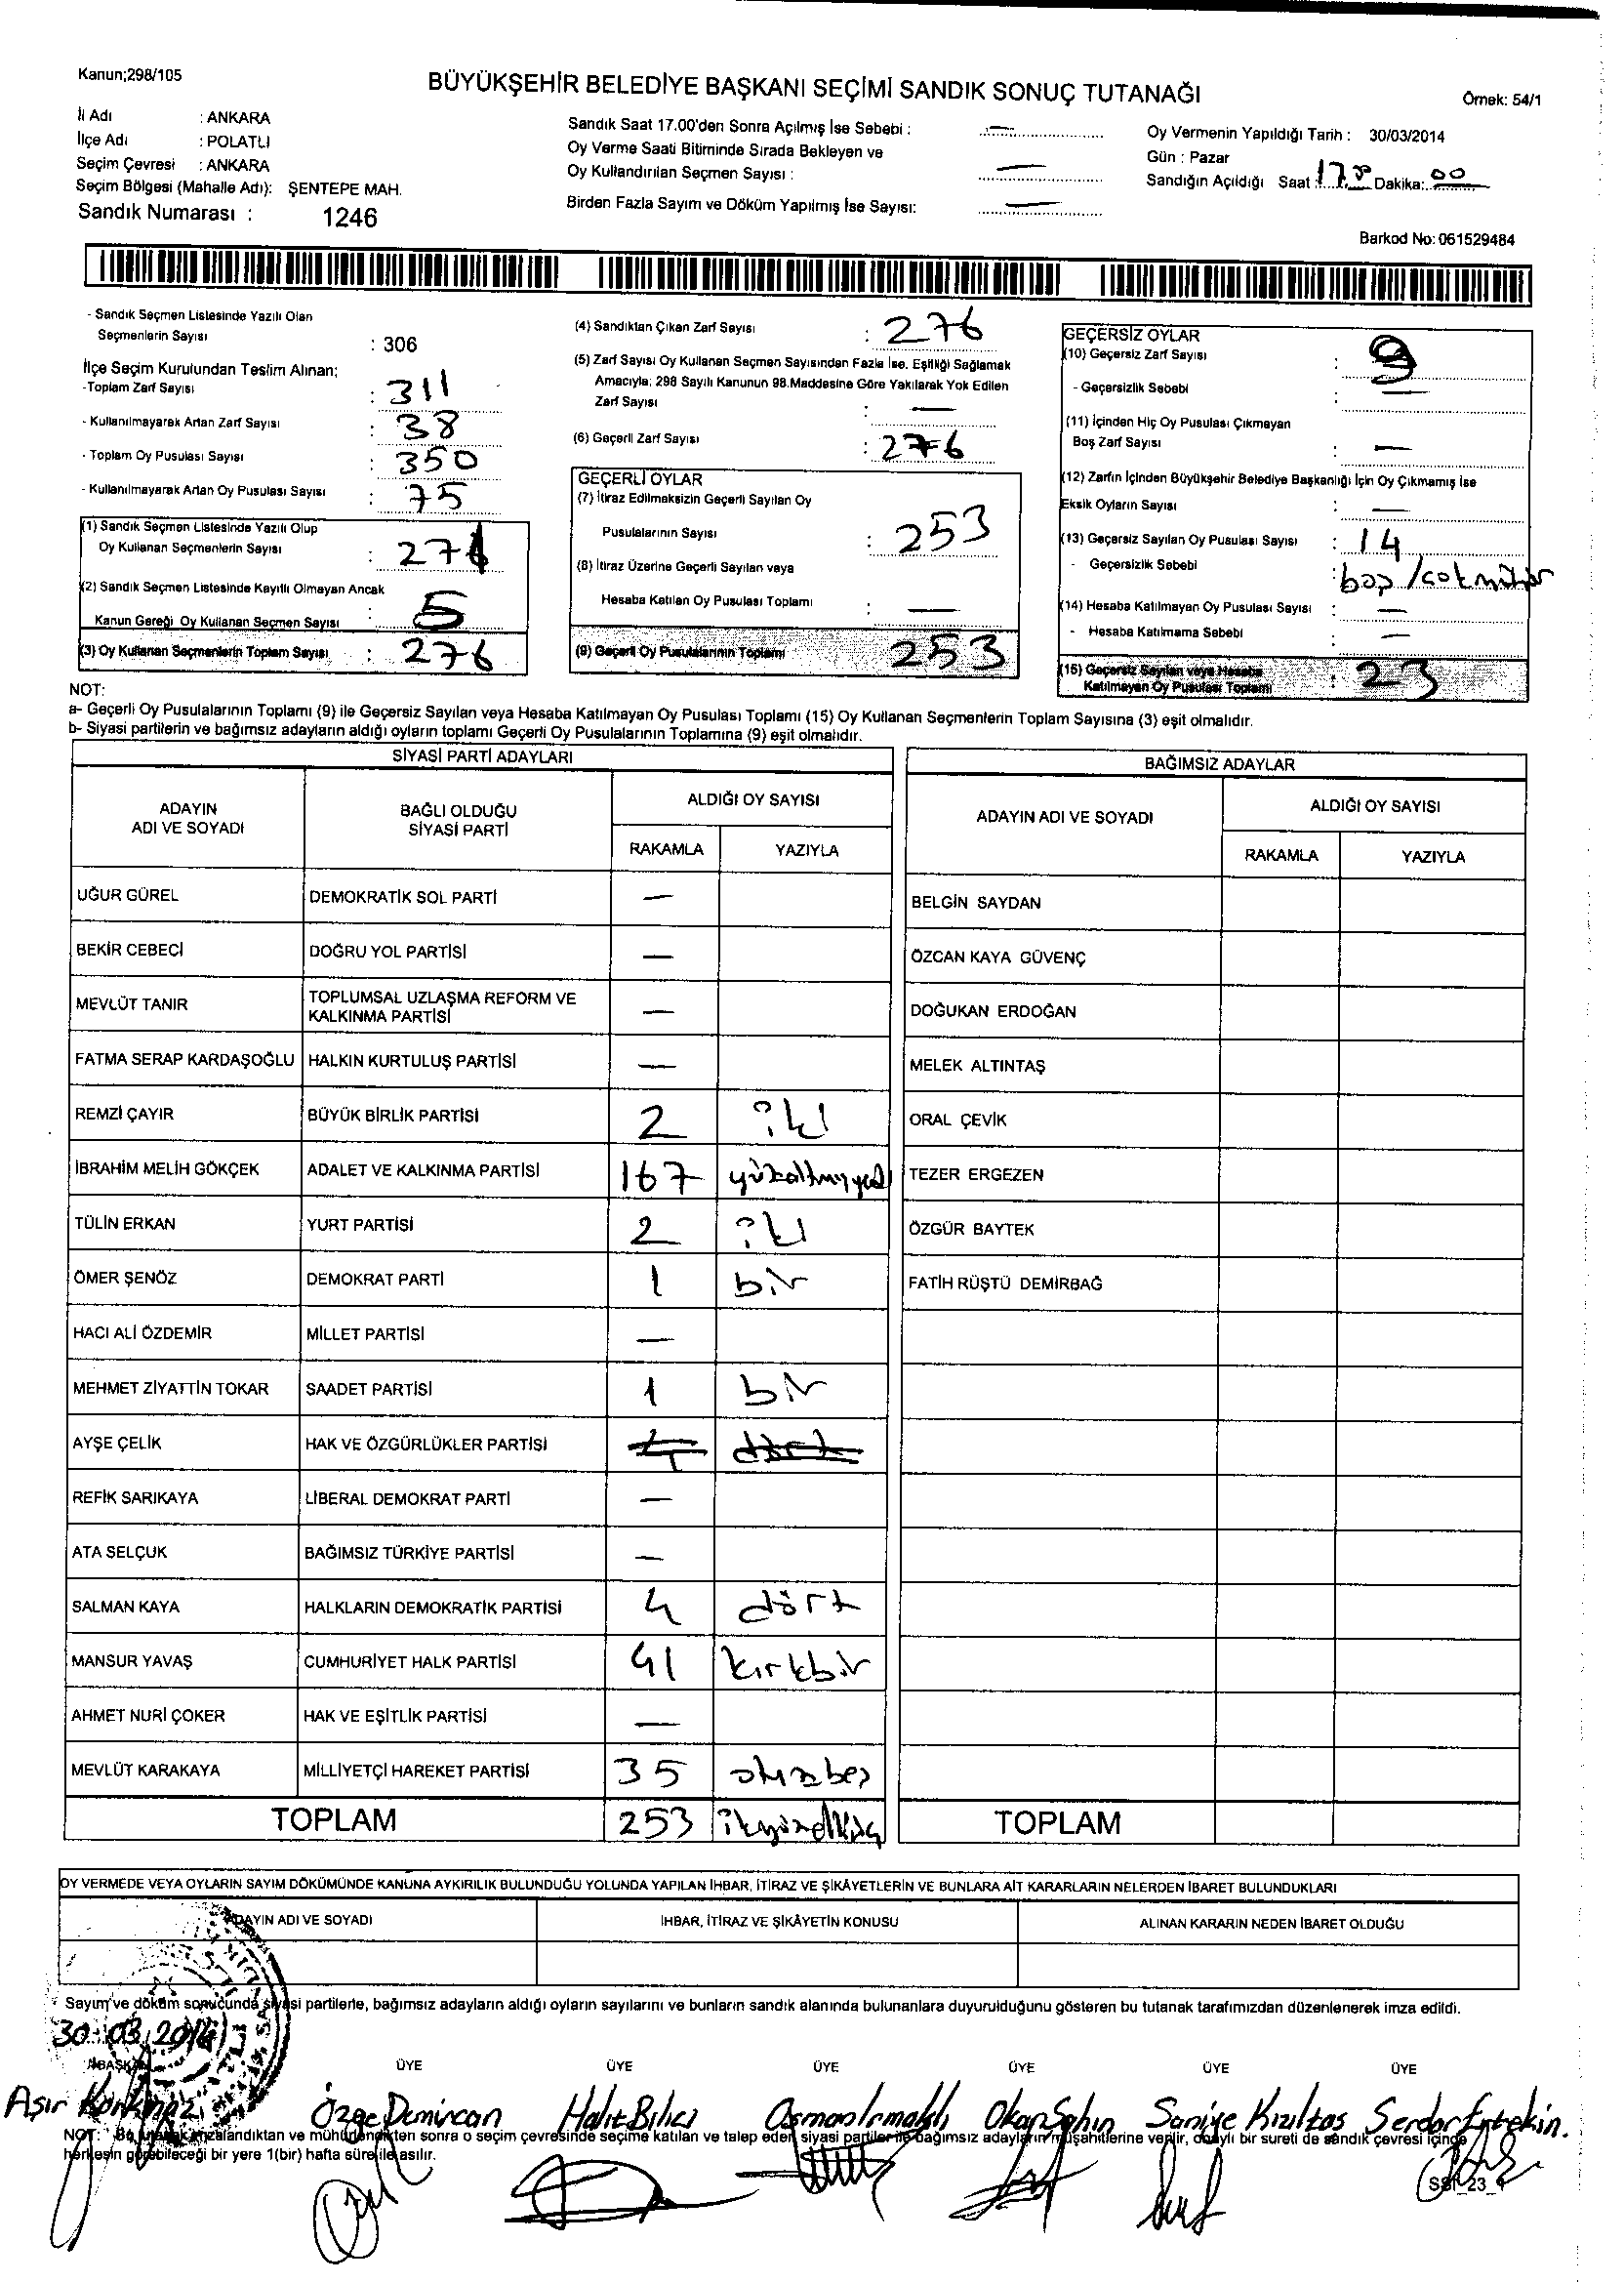 Kanun;298/105
BÜYÜKŞEHİR BELEDİYE BAŞKANI SEÇİMİ SANDIK SONUÇ TUTANAĞI
Örnek: 54/1
İl Adı : ANKARA
İlçe Adı : POLATLI
Seçim Çevresi : ANKARA
Seçim Bölgesi (Mahalle Adı): ŞENTEPE MAH.
Sandık Numarası : 1246
Sandık Saat 17.00'den Sonra Açılmış İse Sebebi : —
Oy Verme Saati Bitiminde Sırada Bekleyen ve
Oy Kullandırılan Seçmen Sayısı : —
Birden Fazla Sayım ve Döküm Yapılmış İse Sayısı: —
Oy Vermenin Yapıldığı Tarih : 30/03/2014
Gün : Pazar
Sandığın Açıldığı Saat : Dakika: 00
Barkod No: 061529484
- Sandık Seçmen Listesinde Yazılı Olan
Seçmenlerin Sayısı : 306
İlçe Seçim Kurulundan Teslim Alınan;
-Toplam Zarf Sayısı : 311
- Kullanılmayarak Artan Zarf Sayısı : 38
- Toplam Oy Pusulası Sayısı : 350
- Kullanılmayarak Artan Oy Pusulası Sayısı : 75
(1) Sandık Seçmen Listesinde Yazılı Olup
Oy Kullanan Seçmenlerin Sayısı : 271
(2) Sandık Seçmen Listesinde Kayıtlı Olmayan Ancak
Kanun Gereği Oy Kullanan Seçmen Sayısı : 5
(3) Oy Kullanan Seçmenlerin Toplam Sayısı : 276
(4) Sandıktan Çıkan Zarf Sayısı : 276
(5) Zarf Sayısı Oy Kullanan Seçmen Sayısından Fazla İse, Eşitliği Sağlamak
Amacıyla; 298 Sayılı Kanunun 98.Maddesine Göre Yakılarak Yok Edilen
Zarf Sayısı : —
(6) Geçerli Zarf Sayısı : 276
GEÇERLİ OYLAR
(7) İtiraz Edilmeksizin Geçerli Sayılan Oy
Pusulalarının Sayısı : 253
(8) İtiraz Üzerine Geçerli Sayılan veya
Hesaba Katılan Oy Pusulası Toplamı : —
(9) Geçerli Oy Pusulalarının Toplamı 253
GEÇERSİZ OYLAR
(10) Geçersiz Zarf Sayısı : 9
- Geçersizlik Sebebi : —
(11) İçinden Hiç Oy Pusulası Çıkmayan
Boş Zarf Sayısı : —
(12) Zarfın İçinden Büyükşehir Belediye Başkanlığı İçin Oy Çıkmamış İse
Eksik Oyların Sayısı : —
(13) Geçersiz Sayılan Oy Pusulası Sayısı : 14
- Geçersizlik Sebebi : boş / çok mühür
(14) Hesaba Katılmayan Oy Pusulası Sayısı : —
- Hesaba Katılmama Sebebi : —
(15) Geçersiz Sayılan veya Hesaba
Katılmayan Oy Pusulası Toplamı : 23
NOT:
a- Geçerli Oy Pusulalarının Toplamı (9) ile Geçersiz Sayılan veya Hesaba Katılmayan Oy Pusulası Toplamı (15) Oy Kullanan Seçmenlerin Toplam Sayısına (3) eşit olmalıdır.
b- Siyasi partilerin ve bağımsız adayların aldığı oyların toplamı Geçerli Oy Pusulalarının Toplamına (9) eşit olmalıdır.
SİYASİ PARTİ ADAYLARI
ADAYIN
ADI VE SOYADI
BAĞLI OLDUĞU
SİYASİ PARTİ
ALDIĞI OY SAYISI
RAKAMLA YAZIYLA
UĞUR GÜREL DEMOKRATİK SOL PARTİ —
BEKİR CEBECİ DOĞRU YOL PARTİSİ —
MEVLÜT TANIR TOPLUMSAL UZLAŞMA REFORM VE
KALKINMA PARTİSİ —
FATMA SERAP KARDAŞOĞLU HALKIN KURTULUŞ PARTİSİ —
REMZİ ÇAYIR BÜYÜK BİRLİK PARTİSİ 2 iki
İBRAHİM MELİH GÖKÇEK ADALET VE KALKINMA PARTİSİ 167 yüzaltmışyedi
TÜLİN ERKAN YURT PARTİSİ 2 iki
ÖMER ŞENÖZ DEMOKRAT PARTİ 1 bir
HACI ALİ ÖZDEMİR MİLLET PARTİSİ —
MEHMET ZİYATTİN TOKAR SAADET PARTİSİ 1 bir
AYŞE ÇELİK HAK VE ÖZGÜRLÜKLER PARTİSİ 4 dört
REFİK SARIKAYA LİBERAL DEMOKRAT PARTİ —
ATA SELÇUK BAĞIMSIZ TÜRKİYE PARTİSİ —
SALMAN KAYA HALKLARIN DEMOKRATİK PARTİSİ 4 dört
MANSUR YAVAŞ CUMHURİYET HALK PARTİSİ 41 kırkbir
AHMET NURİ ÇOKER HAK VE EŞİTLİK PARTİSİ —
MEVLÜT KARAKAYA MİLLİYETÇİ HAREKET PARTİSİ 35 otuzbeş
TOPLAM 253 ikiyüzelliüç
BAĞIMSIZ ADAYLAR
ADAYIN ADI VE SOYADI
ALDIĞI OY SAYISI
RAKAMLA YAZIYLA
BELGİN SAYDAN
ÖZCAN KAYA GÜVENÇ
DOĞUKAN ERDOĞAN
MELEK ALTINTAŞ
ORAL ÇEVİK
TEZER ERGEZEN
ÖZGÜR BAYTEK
FATİH RÜŞTÜ DEMİRBAĞ
TOPLAM
OY VERMEDE VEYA OYLARIN SAYIM DÖKÜMÜNDE KANUNA AYKIRILIK BULUNDUĞU YOLUNDA YAPILAN İHBAR, İTİRAZ VE ŞİKÂYETLERİN VE BUNLARA AİT KARARLARIN NELERDEN İBARET BULUNDUKLARI
ADAYIN ADI VE SOYADI
İHBAR, İTİRAZ VE ŞİKÂYETİN KONUSU
ALINAN KARARIN NEDEN İBARET OLDUĞU
Sayım ve döküm sonucunda siyasi partilerle, bağımsız adayların aldığı oyların sayılarını ve bunların sandık alanında bulunanlara duyurulduğunu gösteren bu tutanak tarafımızdan düzenlenerek imza edildi.
30.03.2014
BAŞKAN ÜYE ÜYE ÜYE ÜYE ÜYE ÜYE
Aşır Korkmaz Özge Demircan Halit Bilici Osman Okan Şahin Saniye Kızıltaş Serdar Ertekin.
NOT: Bu tutanak imzalandıktan ve mühürlendikten sonra o seçim çevresinde seçime katılan ve talep eden siyasi partiler ile bağımsız adayların müşahitlerine verilir, onaylı bir sureti de sandık çevresi içinde
herkesin görebileceği bir yere 1(bir) hafta süre ile asılır.